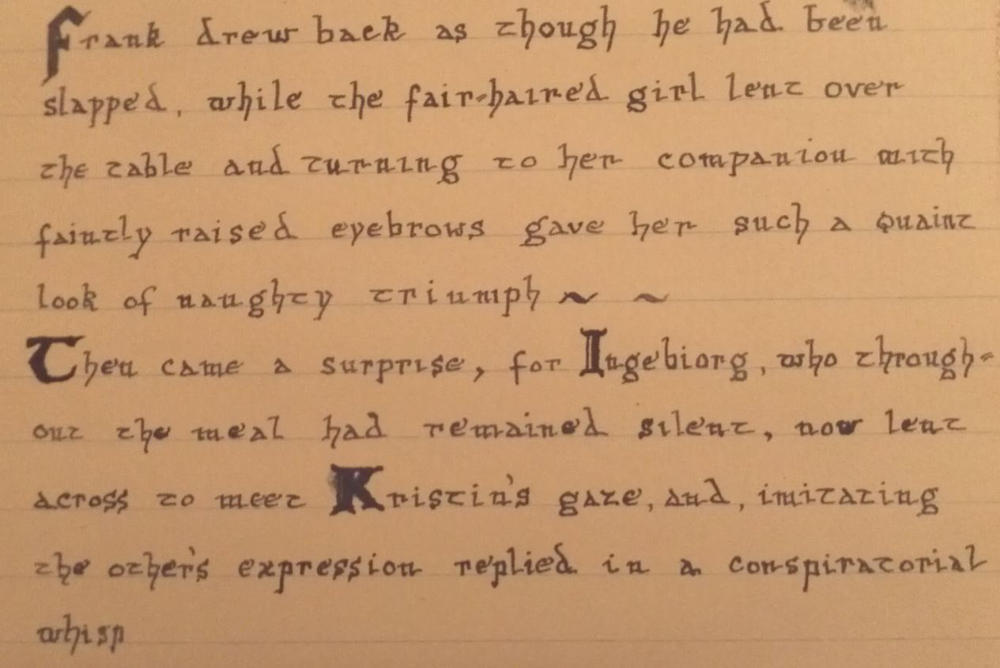 Frank drew back as though he had been
slapped, while the fair-haired girl lent over
the table and turning to her companion with
faintly raised eyebrows gave her such a quaint
look of naughty triumph ~ ~
Then came a surprise, for Ingebiorg, who through-
out the meal had remained silent, now lent
across to meet Kristin's gaze, and, imitating
the other's expression replied in a conspiratorial
whisp